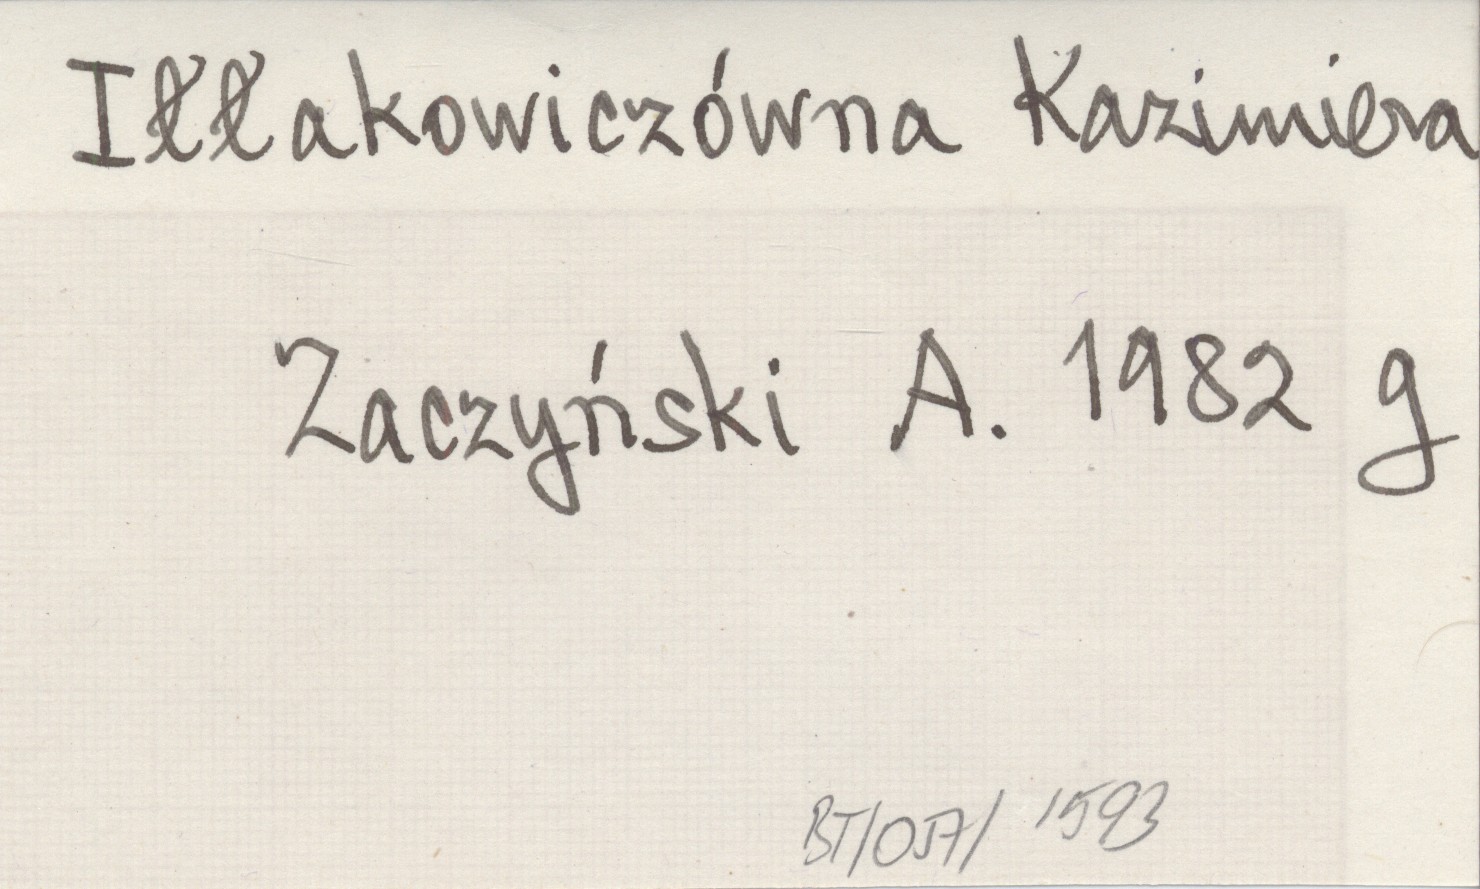 Iłłakowiczówna Kazimiera
Zaczyński A. 1982 g
BT/OJA/ 1593